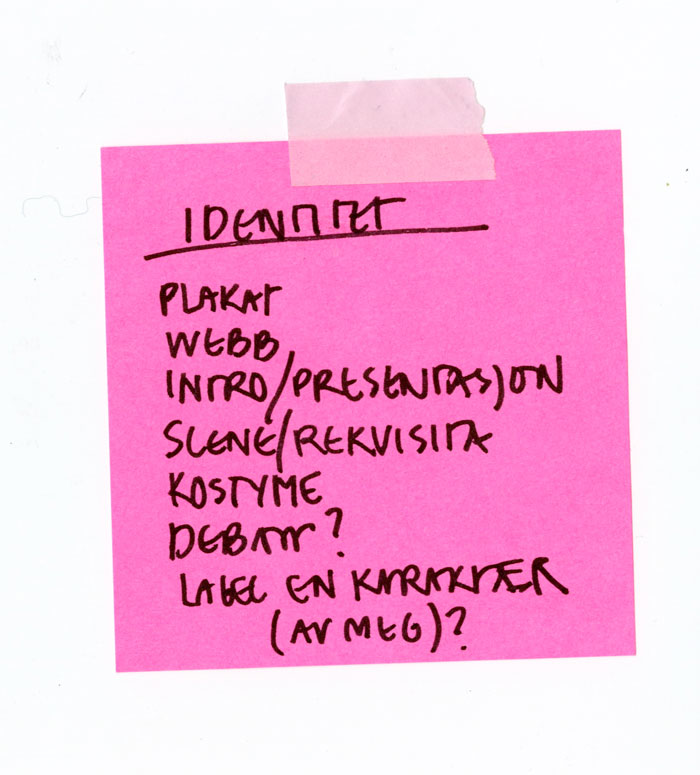 IDENTITET
PLAKAT
WEBB
INTRO/PRESENTASJON
SCENE/REKVISITA
KOSTYME
DEBATT?
LABEL EN KARAKTÆR
(AV MEG)?